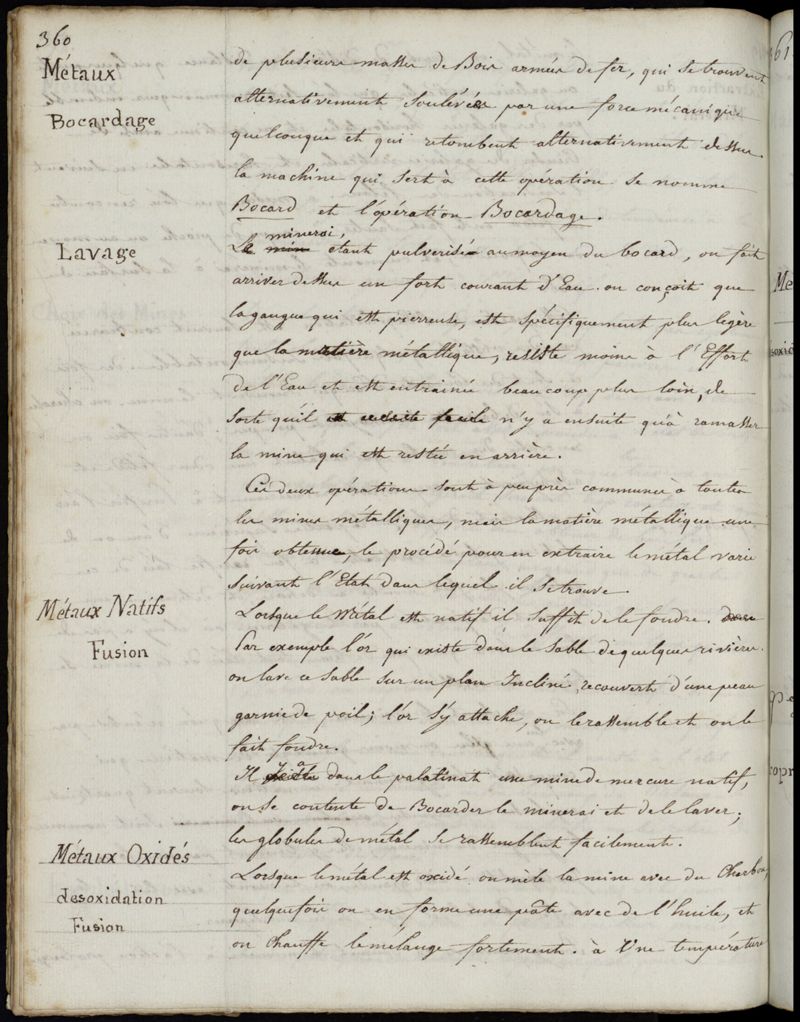 360
Métaux
Bocardage
de plusieurs masses de Bois armées de fer, qui se trouvent
alternativement soulevées par une force mécanique
quelconque et qui retombent alternativement dessus.
la machine qui sert à cette opération se nomme
Bocard et l'opération Bocardage.
Lavage
minerai,
Le min etant pulverisé au moyen du bocard, on fait
arriver dessus un fort courant d'Eau. on conçoit que
la gangue qui est pierreuse, est spécifiquement plus legère
que la matière métallique, resiste moins à l'Effort
de l'Eau et est entrainée beaucoup plus loin, de
sorte qu'il est ensuite facile n'y a ensuite qu'à ramasser
la mine qui est restée en arrière.
Ces deux opérations sont à peu près communes à toutes
les mines métalliques, mais la matière métallique une
fois obtenue, le procédé pour en extraire le métal varie
suivant l'Etat dans lequel il se trouve.
Métaux Natifs
Fusion
Lorsque le Métal est natif il suffit de le fondre.
Par exemple l'or qui existe dans le sable de quelques rivières.
on lave ce sable sur un plan Incliné, recouvert d'une peau
garnie de poil; l'or s'y attache, on le rassemble et on le
fait fondre.
Il y a dans le palatinat une mine de mercure natif,
on se contente de Bocarder le minerai et de le laver;
les globules de métal se rassemblent facilement.
Métaux Oxidés
desoxidation
Fusion
Lorsque le métal est oxidé on mêle la mine avec du Charbon,
quelquefois on en forme une pâte avec de l'huile, et
on chauffe le mélange fortement. à Une température
361
Me